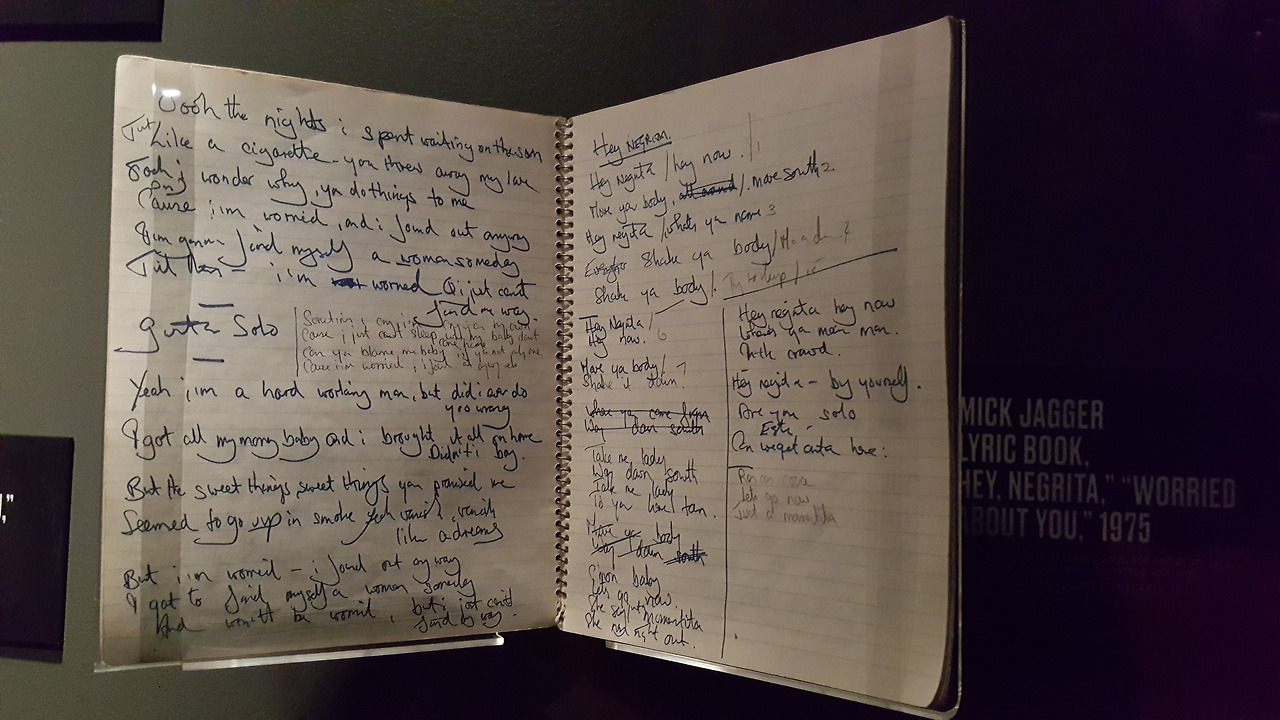 Oooh the nights i spent waiting on the sun
Just Like a cigarette - you threw away my love
Oooh i wonder why, you do things to me
Cause i'm worried, and i found out anyway
I'm gonna find myself a woman someday
Till then - i'm worried & i just cant
find my way.
guitar Solo
Cause i just can't sleep my baby dont
come home
Can ya blame me baby if
Cause i'm worried, i
Yeah i'm a hard working man, but did i ever do
you wrong
I got all my money baby and i brought it all on home
Didn't i boy.
But the sweet things sweet things you promised me
Seemed to go up in smoke yeah vanish
like a dreams
But i'm worried - i found out anyway
I got to find myself a woman someday
And worried, but i just can't
find my way.
Hey NEGRITA.
Hey Negrita / hey now. / 1
Move ya body, / move south 2
Hey negrita / whats ya name 3
Shake ya body /
Shake ya body / .
Hey Negrita /
Hey now. 6
Move ya body / 7
Shake it down.
where ya come from
way down south
Take me lady
Way down south
Take me lady
To your home town.
Move ya body
Way down south
C'mon baby
lets go now.
She said Mamacita
She right out.
Hey negrita hey now
Where's ya main man.
In the crowd.
Hey negrita - by yourself.
Are you solo
Este -
Can we get outa here:
lets go now
MICK JAGGER
LYRIC BOOK,
HEY, NEGRITA," "WORRIED
ABOUT YOU," 1975